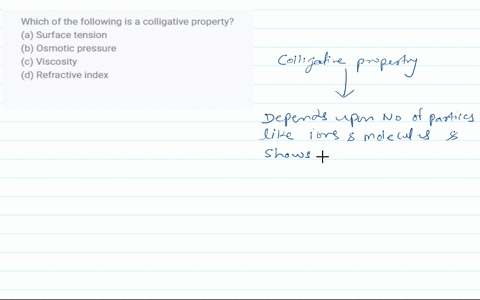 Which of the following is a colligative property?
(a) Surface tension
(b) Osmotic pressure
(c) Viscosity
(d) Refractive index
Colligative property
Depends upon No of particles
like ions & molecules &
shows